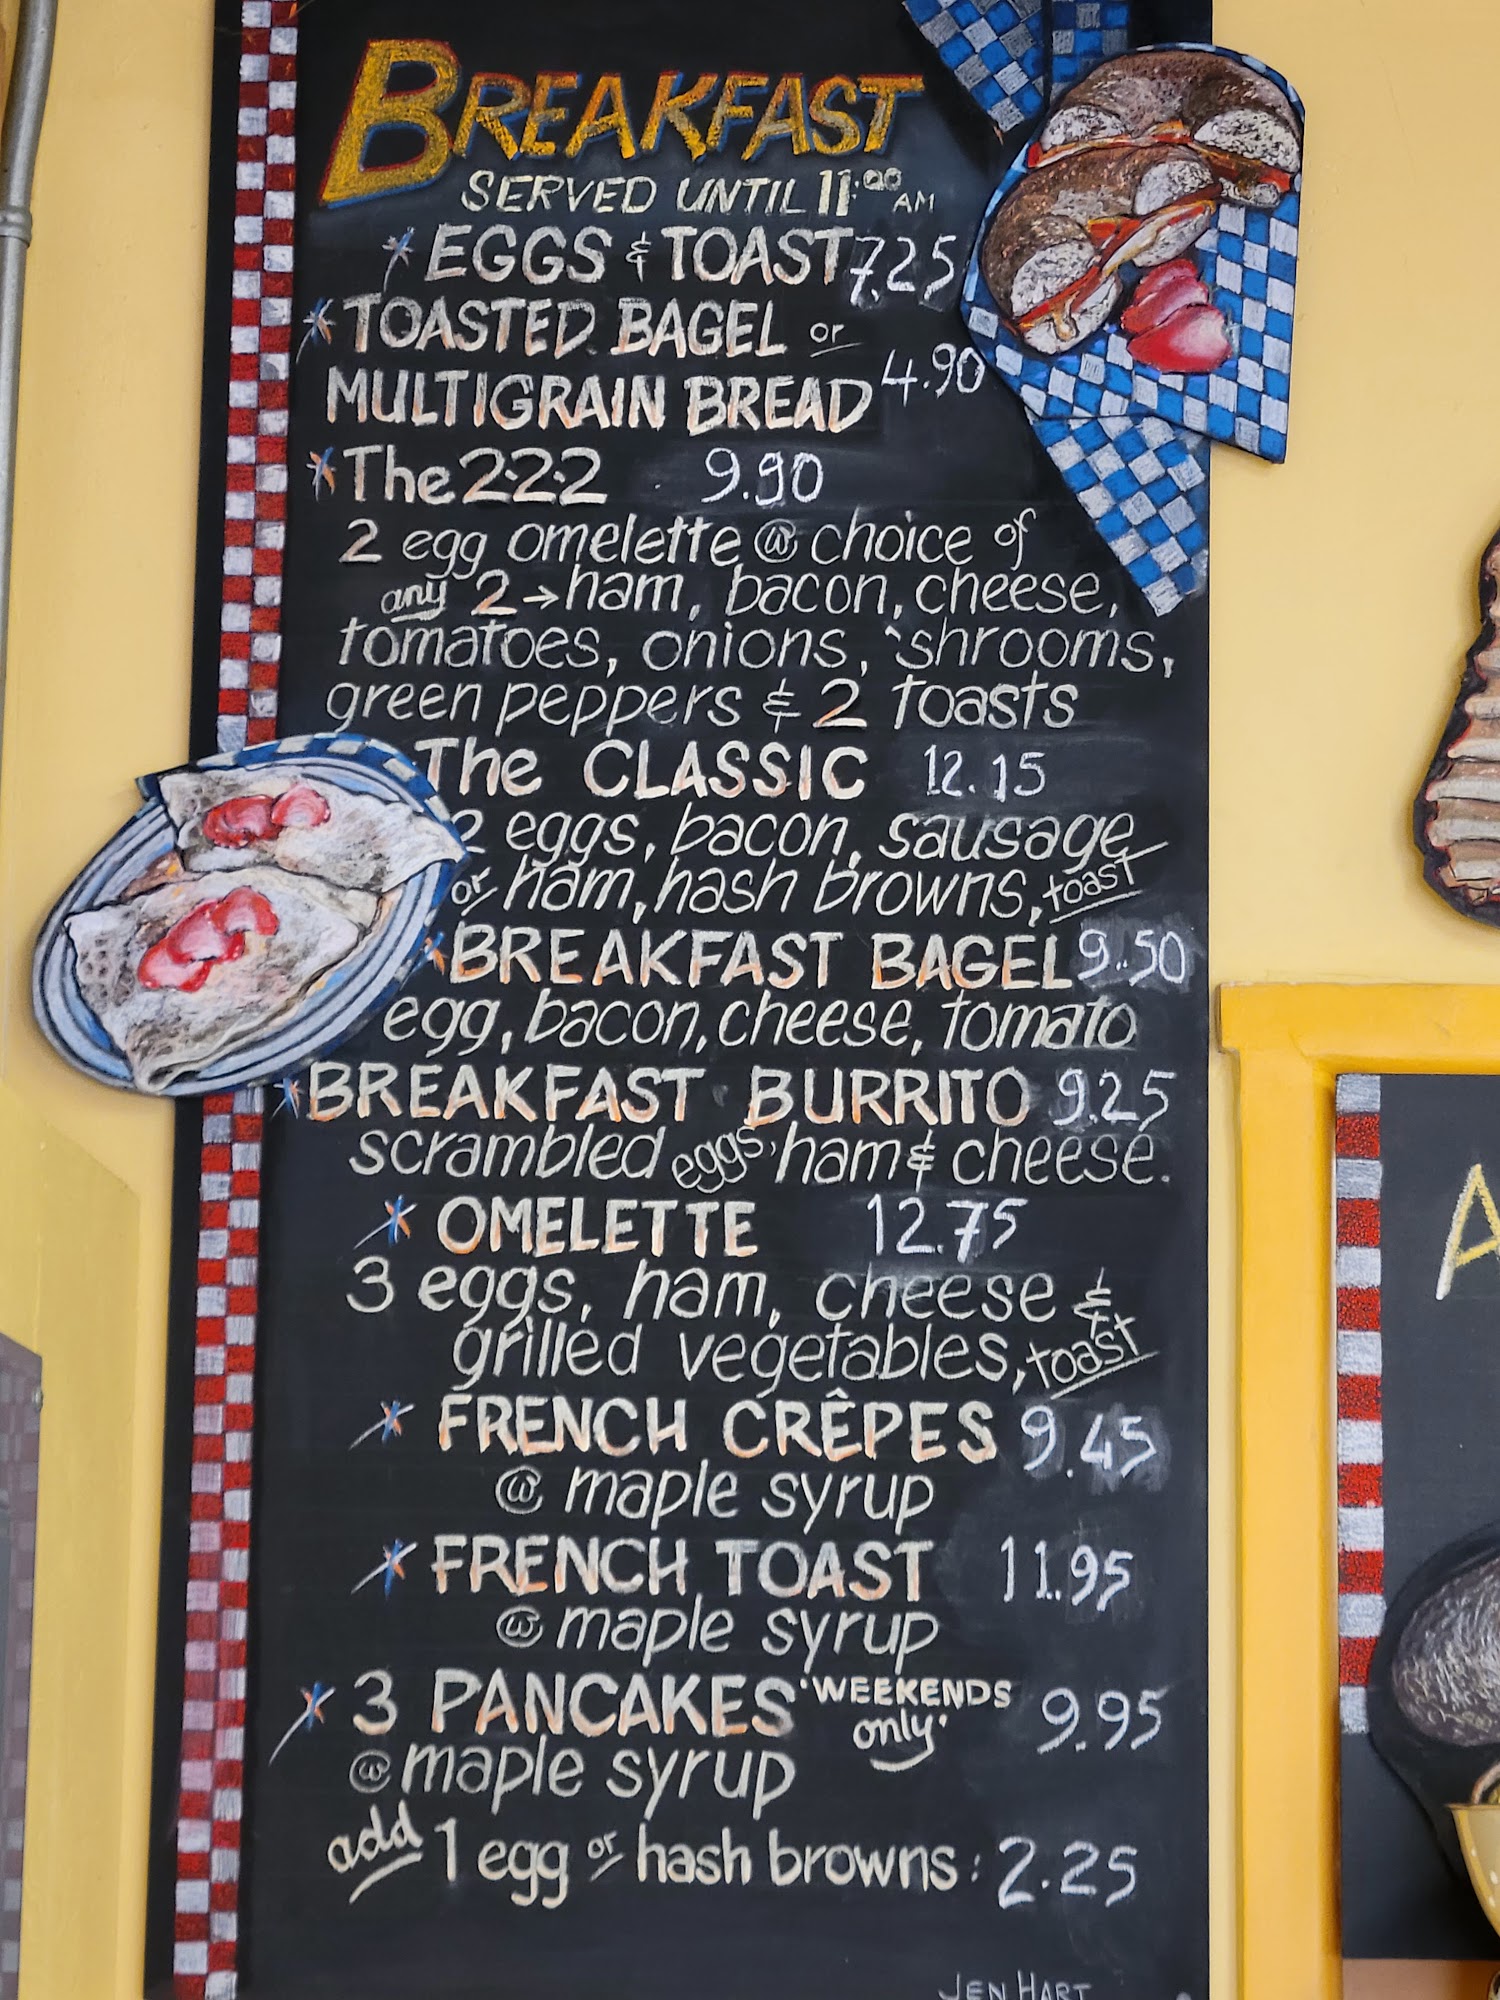 BREAKFAST
SERVED UNTIL 11:00 AM
* EGGS & TOAST 7.25
* TOASTED BAGEL or
MULTIGRAIN BREAD 4.90
* The 2·2·2 9.90
2 egg omelette w choice of
any 2 → ham, bacon, cheese,
tomatoes, onions, 'shrooms,
green peppers & 2 toasts
The CLASSIC 12.15
2 eggs, bacon, sausage
or ham, hash browns, toast
* BREAKFAST BAGEL 9.50
egg, bacon, cheese, tomato
* BREAKFAST BURRITO 9.25
scrambled eggs, ham & cheese.
* OMELETTE 12.75
3 eggs, ham, cheese &
grilled vegetables, toast
* FRENCH CRÊPES 9.45
w maple syrup
* FRENCH TOAST 11.95
w maple syrup
* 3 PANCAKES ·WEEKENDS only· 9.95
w maple syrup
add 1 egg or hash browns: 2.25
JEN HART
A